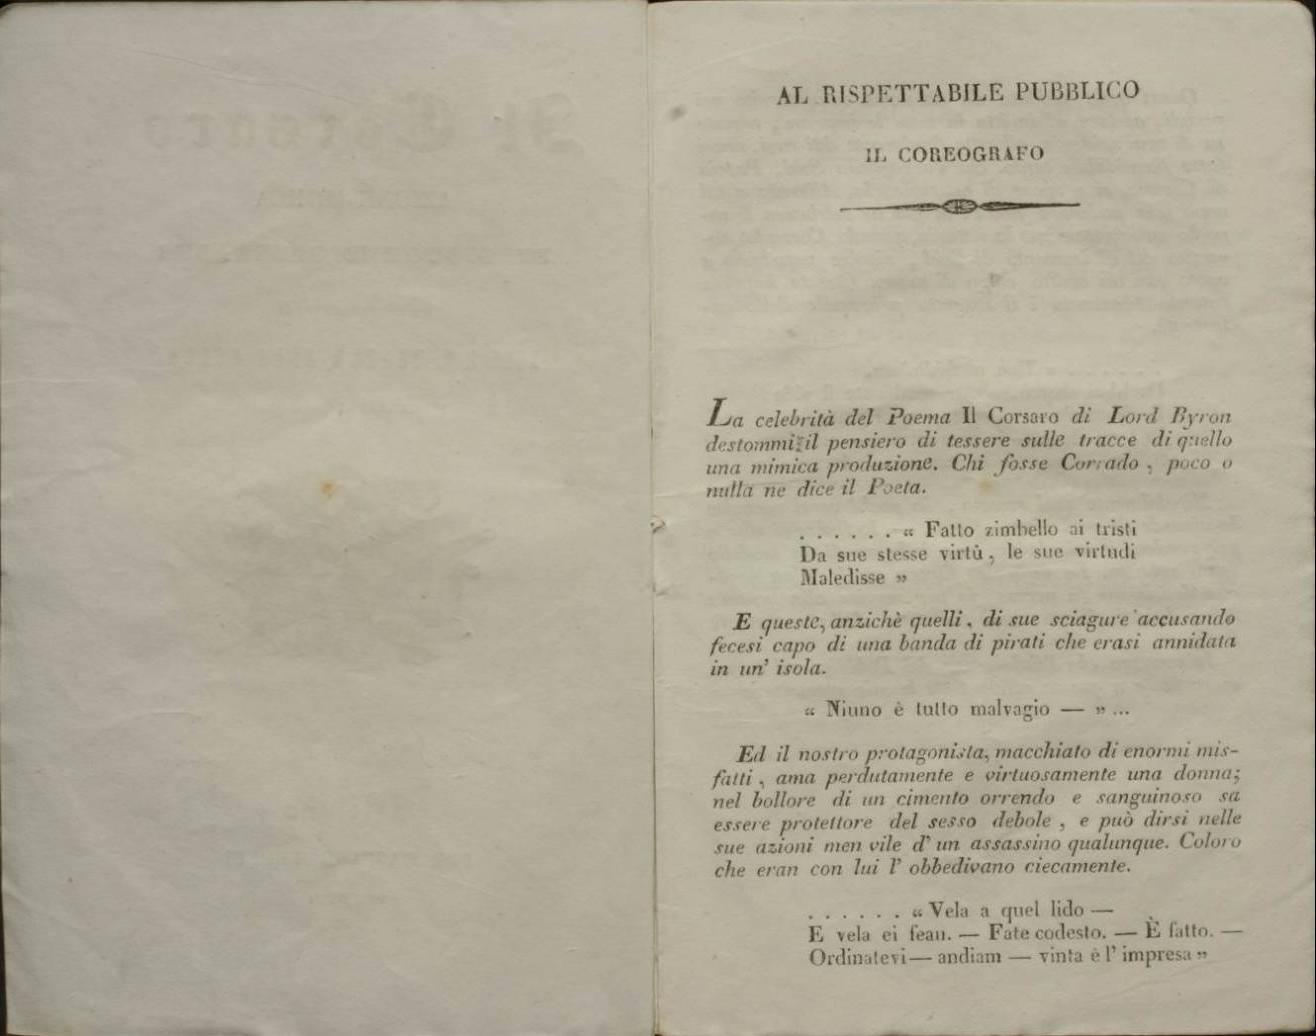 AL RISPETTABILE PUBBLICO
IL COREOGRAFO
La celebrità del Poema Il Corsaro di Lord Byron
destommi il pensiero di tessere sulle tracce di quello
una mimica produzione. Chi fosse Corrado, poco o
nulla ne dice il Poeta.
. . . . . . « Fatto zimbello ai tristi
Da sue stesse virtù, le sue virtudi
Maledisse »
E queste, anzichè quelli, di sue sciagure accusando
fecesi capo di una banda di pirati che erasi annidata
in un' isola.
« Niuno è tutto malvagio — » ...
Ed il nostro protagonista, macchiato di enormi mis-
fatti, ama perdutamente e virtuosamente una donna;
nel bollore di un cimento orrendo e sanguinoso sa
essere protettore del sesso debole, e può dirsi nelle
sue azioni men vile d' un assassino qualunque. Coloro
che eran con lui l' obbedivano ciecamente.
. . . . . . « Vela a quel lido —
E vela ei fean. — Fate codesto. — È fatto. —
Ordinatevi — andiam — vinta è l' impresa »